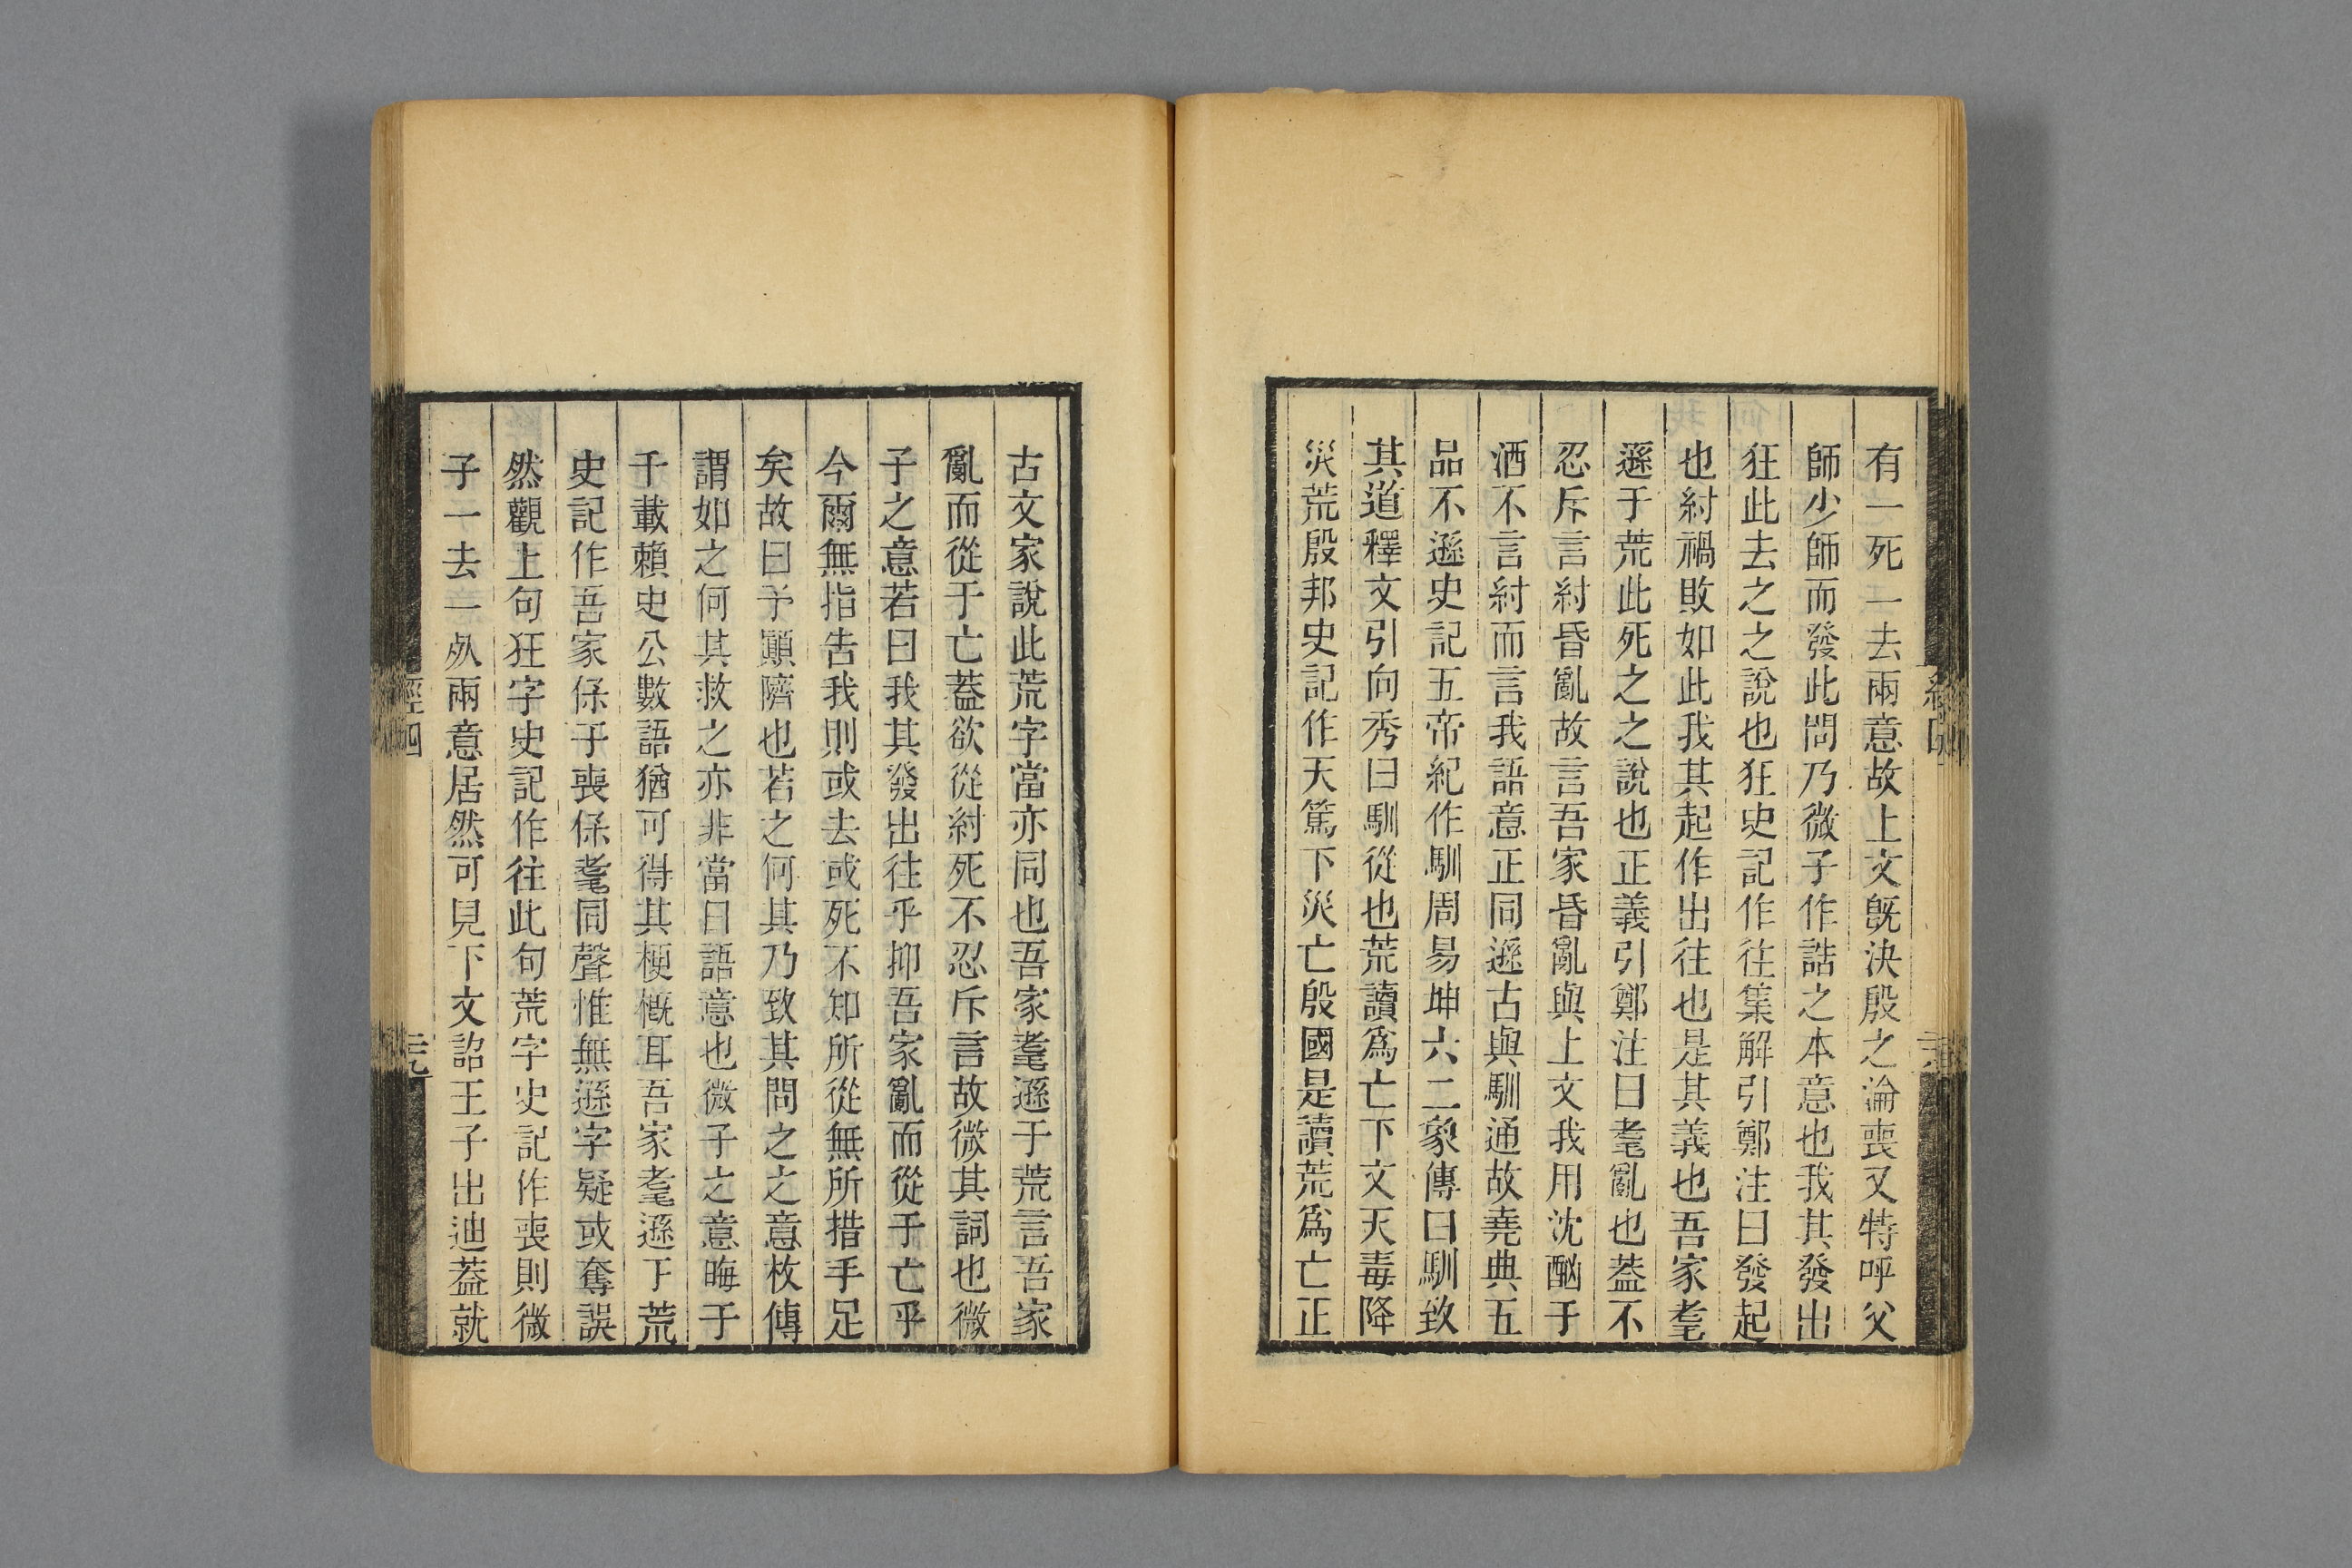 有一死一去兩意故上文既決殷之淪喪又特呼父
師少師而發此問乃微子作誥之本意也我其發出
狂此去之之說也狂史記作往集解引鄭注曰發起
也紂禍敗如此我其起作出往也是其義也吾家耄
遜于荒此死之之說也正義引鄭注曰耄亂也葢不
忍斥言紂昏亂故言吾家昏亂與上文我用沈酗于
酒不言紂而言我語意正同遜古與馴通故堯典五
品不遜史記五帝紀作馴周易坤六二象傳曰馴致
其道釋文引向秀曰馴從也荒讀爲亡下文天毒降
災荒殷邦史記作天篤下災亡殷國是讀荒爲亡正
古文家說此荒字當亦同也吾家耄遜于荒言吾家
亂而從于亡葢欲從紂死不忍斥言故微其詞也微
子之意若曰我其發出往乎抑吾家亂而從于亡乎
今爾無指告我則或去或死不知所從無所措手足
矣故曰予顚隮也若之何其乃致其問之之意枚傳
謂如之何其救之亦非當日語意也微子之意晦于
千載賴史公數語猶可得其梗槪耳吾家耄遜于荒
史記作吾家保于喪保耄同聲惟無遜字疑或奪誤
然觀上句狂字史記作往此句荒字史記作喪則微
子一去一死兩意居然可見下文詔王子出迪葢就
經四